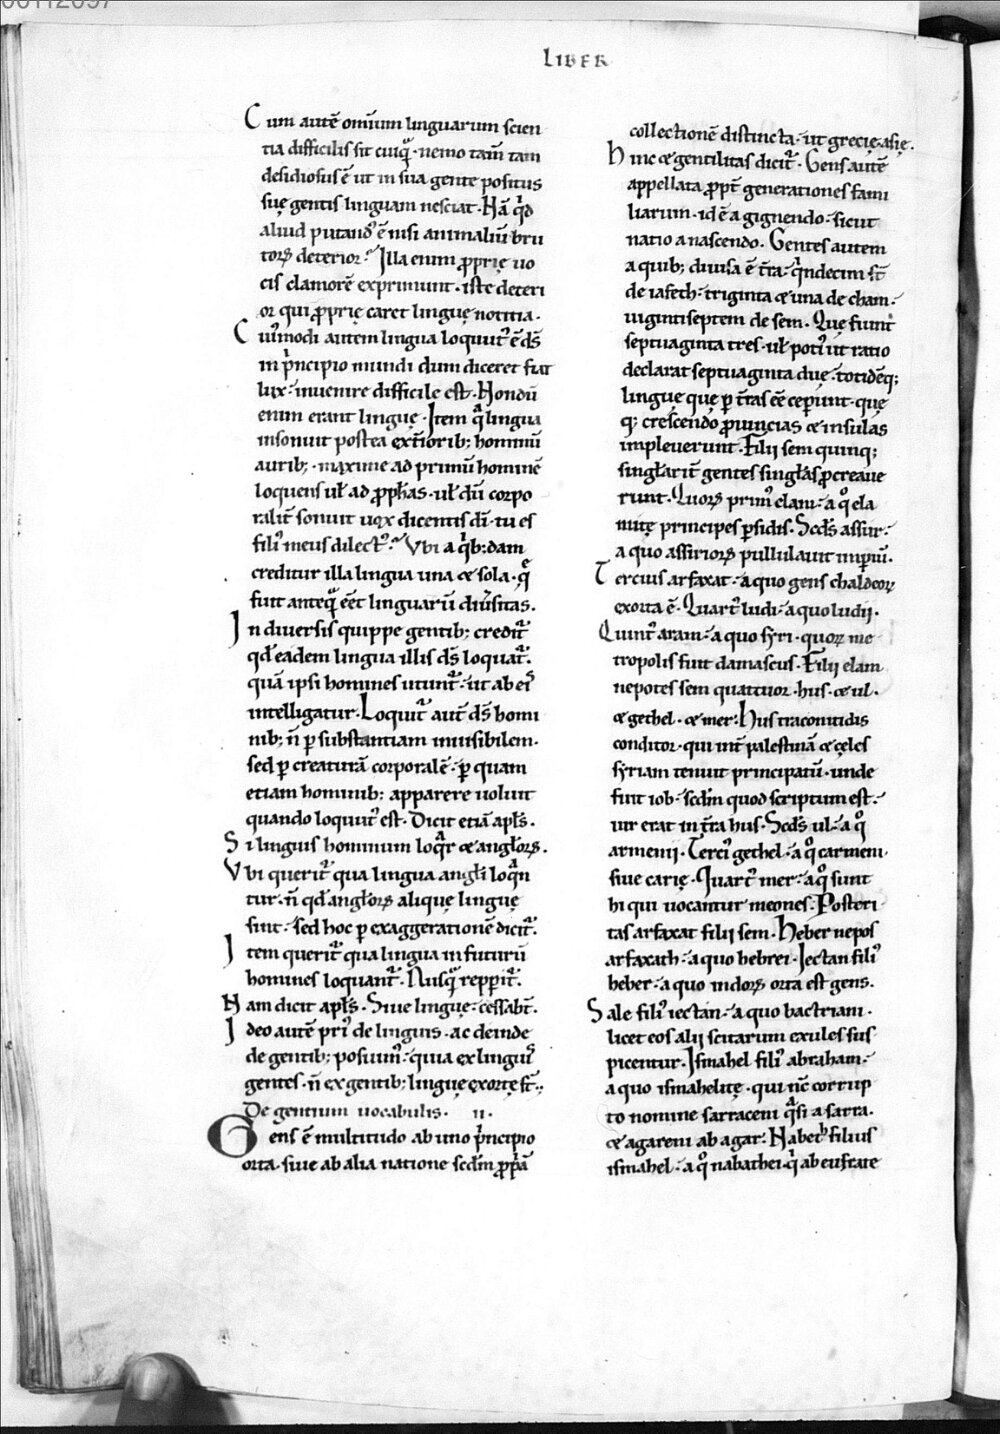 00112097
LIBER
Cum autē omnium linguarum scien
tia difficilis sit cuiq̃. nemo tam̃ tam
desidiosus ē ut in sua gente positus
suę gentis linguam nesciat. Nā qͥd
aliud putandꝰ ē nisi animaliū bru
toꝝ deterior. Illa enim ꝓprię uo
cis clamorē exprimunt. iste deteri
or qui ꝓprię caret linguę notitia.
Cuiꝰmodi autem lingua locutꝰ ē d̄s
in pͥncipio mundi dum diceret fiat
lux. inuenire difficile est. Nondū
enim erant linguę. Item qͣ lingua
insonuit postea extiorib; hominū
aurib;. maxime ad primū hominē
loquens ul̄ ad ꝓph̄as. ul̄ dū corpo
ralit̄ sonuit uox dicentis d̄i. tu es
filiꝰ meus dilectꝰ. Vbi a qͥb;dam
creditur illa lingua una & sola. q̨
fuit anteq̃ eēt linguarū diuͥsitas.
In diuersis quippe gentib; credit᷑
qd̄ eadem lingua illis d̄s loquat᷑.
quā ipsi homines utunt᷑. ut ab eiꝰ
intelligatur. Loquit᷑ aut̄ d̄s homi
nib; n̄ ꝑ substantiam inuisibilem.
sed ꝑ creaturā corporalē. ꝑ quam
etiam hominib; apparere uoluit
quando locutꝰ est. Dicit etiā apl̄s.
Si linguis hominum loqͣr & angl̄oꝝ.
Vbi querit᷑ qua lingua angl̄i loqͣn
tur. n̄ qd̄ angl̄oꝝ alique linguę
sint. sed hoc ꝑ exaggerationē dicit᷑.
Item querit᷑ qua lingua in futurū
homines loquant᷑. Nusq̃ reꝑit᷑.
Nam dicit apl̄s. Siue linguę. cessabt̄.
Ideo autē priꝰ de linguis. ac deinde
de gentib; posuimꝰ. quia ex linguis
gentes. n̄ ex gentib; linguę exortę st̄.
De gentium uocabulis. ii.
Gens ē multitudo ab uno pͥncipio
orta. siue ab alia natione scd̄m ꝓpͥā
collectionē distincta. ut grecię. asię.
Hinc & gentilitas dicit᷑. Gens autē
appellata ꝓpt̄ generationes fami
liarum. id ē a gignendo. sicut
natio a nascendo. Gentes autem
a quib; diuisa ē t̄ra. qͥndecim st̄
de iafeth. triginta & una de cham.
uigintiseptem de sem. Que fiunt
septuaginta tres. ul̄ potiꝰ ut ratio
declarat septuaginta due. totidēq;
linguę que ꝑ t̄ras eē ceperunt. que
q; crescendo ꝓuincias & insulas
impleuerunt. Filii sem quinq;
singl̄arit̄ gentes singl̄as ꝓcreaue
runt. Quoꝝ primꝰ elam. a qͦ ela
mitę principes ꝑsidis. Scd̄s assur.
a quo assirioꝝ pullulauit imꝑiū.
Tercius arfaxat. a quo gens chaldeoꝝ
exorta ē. Quartꝰ ludi. a quo ludii.
Quintꝰ aram. a quo syri. quoꝝ me
tropolis fuit damascus. Filii elam
nepotes sem quattuor. hus. & ul.
& gethel. & mer. Hus traconitidis
conditor. qui int̄ palestinā & celes
syriam tenuit principatū. unde
fuit iob. scd̄m quod scriptum est.
uir erat in t̄ra hus. Scd̄s ul. a qͦ
armenii. Terciꝰ gethel. a qͦ carmeni.
siue carię. Quartꝰ mer. a qͦ sunt
hi qui uocantur meones. Posteri
tas arfaxat filii sem. Heber nepos
arfaxath. a quo hebrei. Iectan filiꝰ
heber. a quo indoꝝ orta est gens.
Sale filiꝰ iectan. a quo bactriani.
licet eos alii scitarum exules sus
picentur. Ismahel filiꝰ abraham.
a quo ismahelitę. qui nc̄ corrup
to nomine sarraceni qͣsi a sarra.
& agareni ab agar. Nabeth filius
ismahel. a qͦ nabathei. qͥ ab eufrate